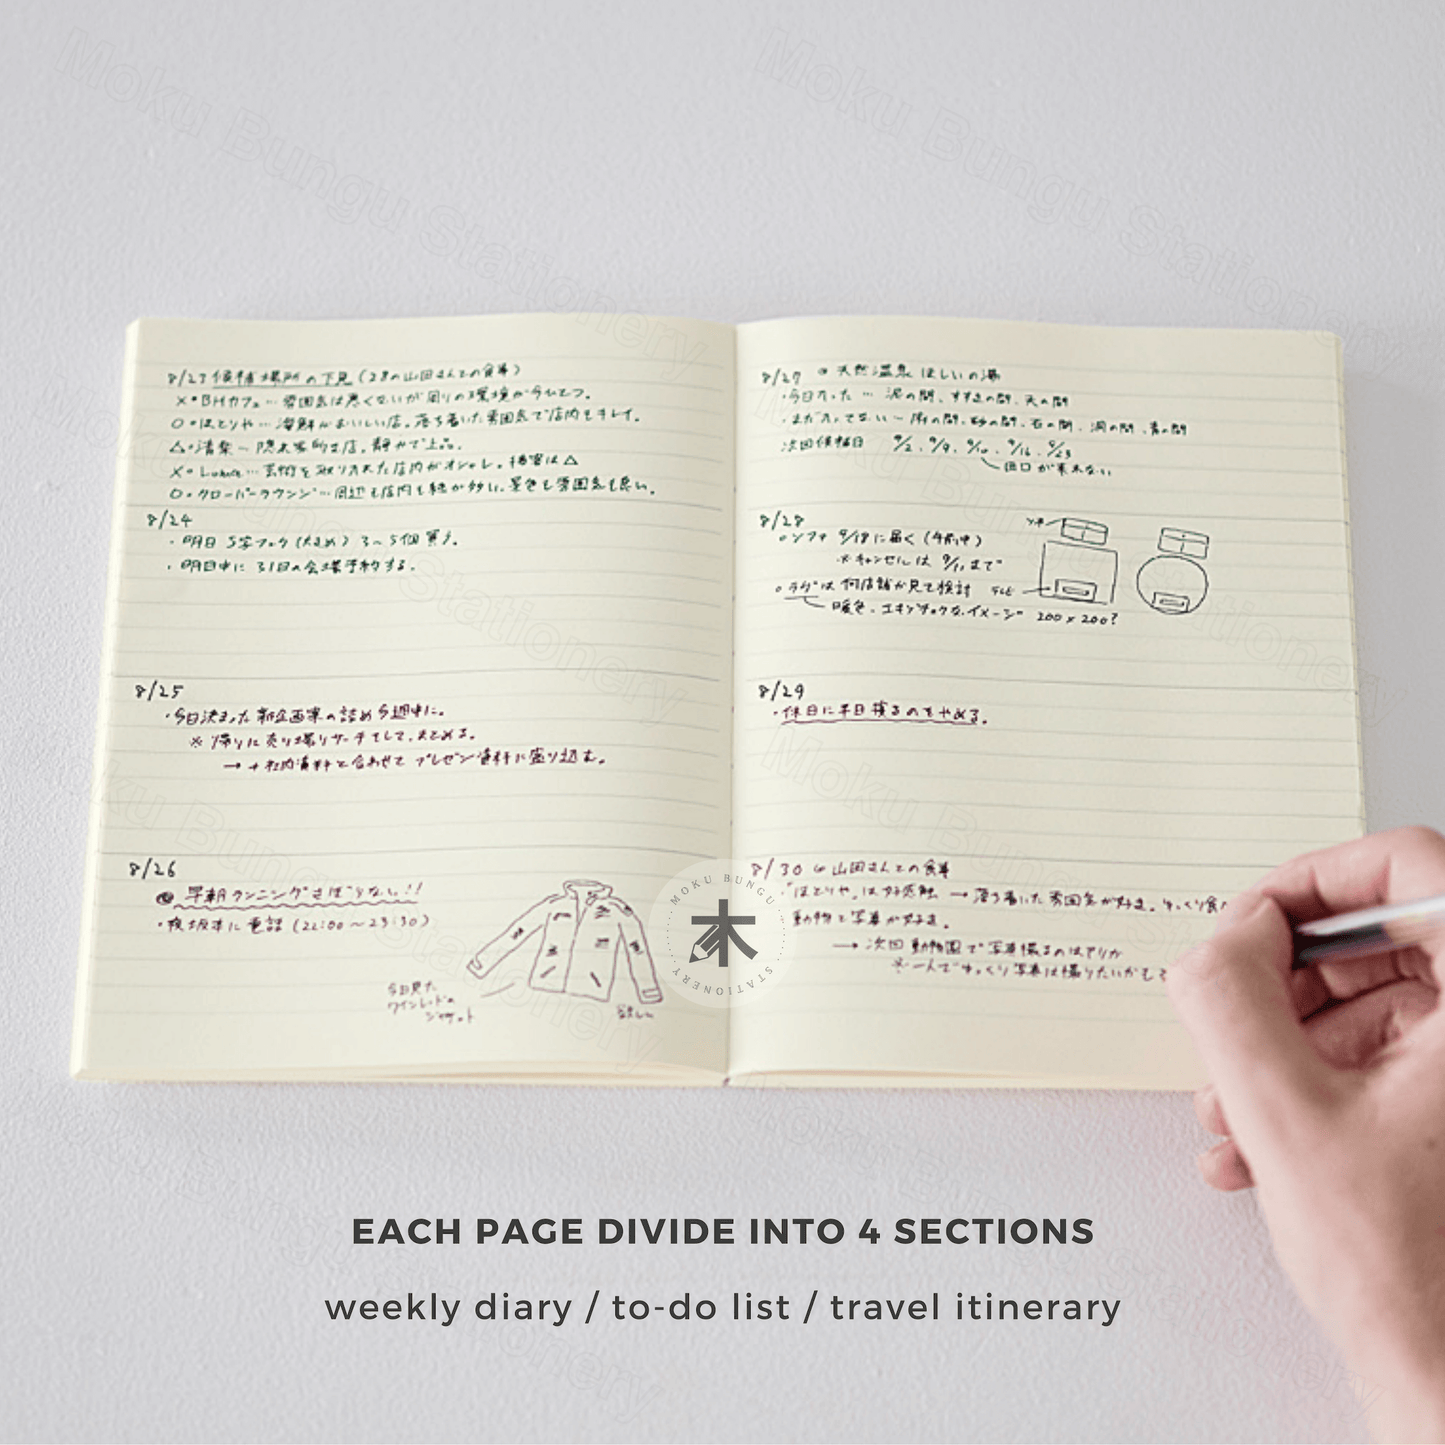 8/23 候補場所の下見(28の山田さんとの食事)
×・BHカフェ…雰囲気は悪くないが周りの環境が今ひとつ。
○・ほとりや…海鮮がおいしい店。落ち着いた雰囲気で店内もキレイ。
△・清楽…隠れ家的な店。静かで上品。
×・…芸術を取り入れた店内がオシャレ。接客は△
○・クローバーラウンジ…周辺も店内も緑が多い。景色も雰囲気も良い。
8/24
・明日 S字フック(大きめ)3〜5個買う。
・明日中に31日の会場予約する。
8/25
・今日決まった新企画案の詰め今週中に。
※帰りに売り場リサーチをして、まとめる。
→+社内資料と合わせてプレゼン資料に盛り込む。
8/26
早朝ランニングさぼりなし!!
・夜坂本に電話(22:00〜23:30)
今日見た
ワインレッドの
ジャケット
欲しい
8/27 天然温泉 ほしいの湯
・今日入った…泥の間、すすきの間、天の間
・まだ入ってない…雨の間、砂の間、石の間、洞の間、青の間
次回候補日 9/2、9/9、9/10、9/16、9/23
田口が来れない
8/28
・ソファ 9/18に届く(午前中)
※キャンセルは9/11まで
・ラグは何店舗か見て検討
暖色、エキゾチックなイメージ
ソファ
ラグ
200×200?
8/29
・休日に平日撮るのをやめる。
8/30 山田さんとの食事
・「ほとりや」は好感触 →落ち着いた雰囲気が好き。ゆっくり食
動物と写真が好き。
→次回 動物園で写真撮るのはアリか
※一人でゆっくり写真は撮りたいかも
MOKU BUNGU
木
STATIONERY
EACH PAGE DIVIDE INTO 4 SECTIONS
weekly diary / to-do list / travel itinerary
Moku Bungu Stationery